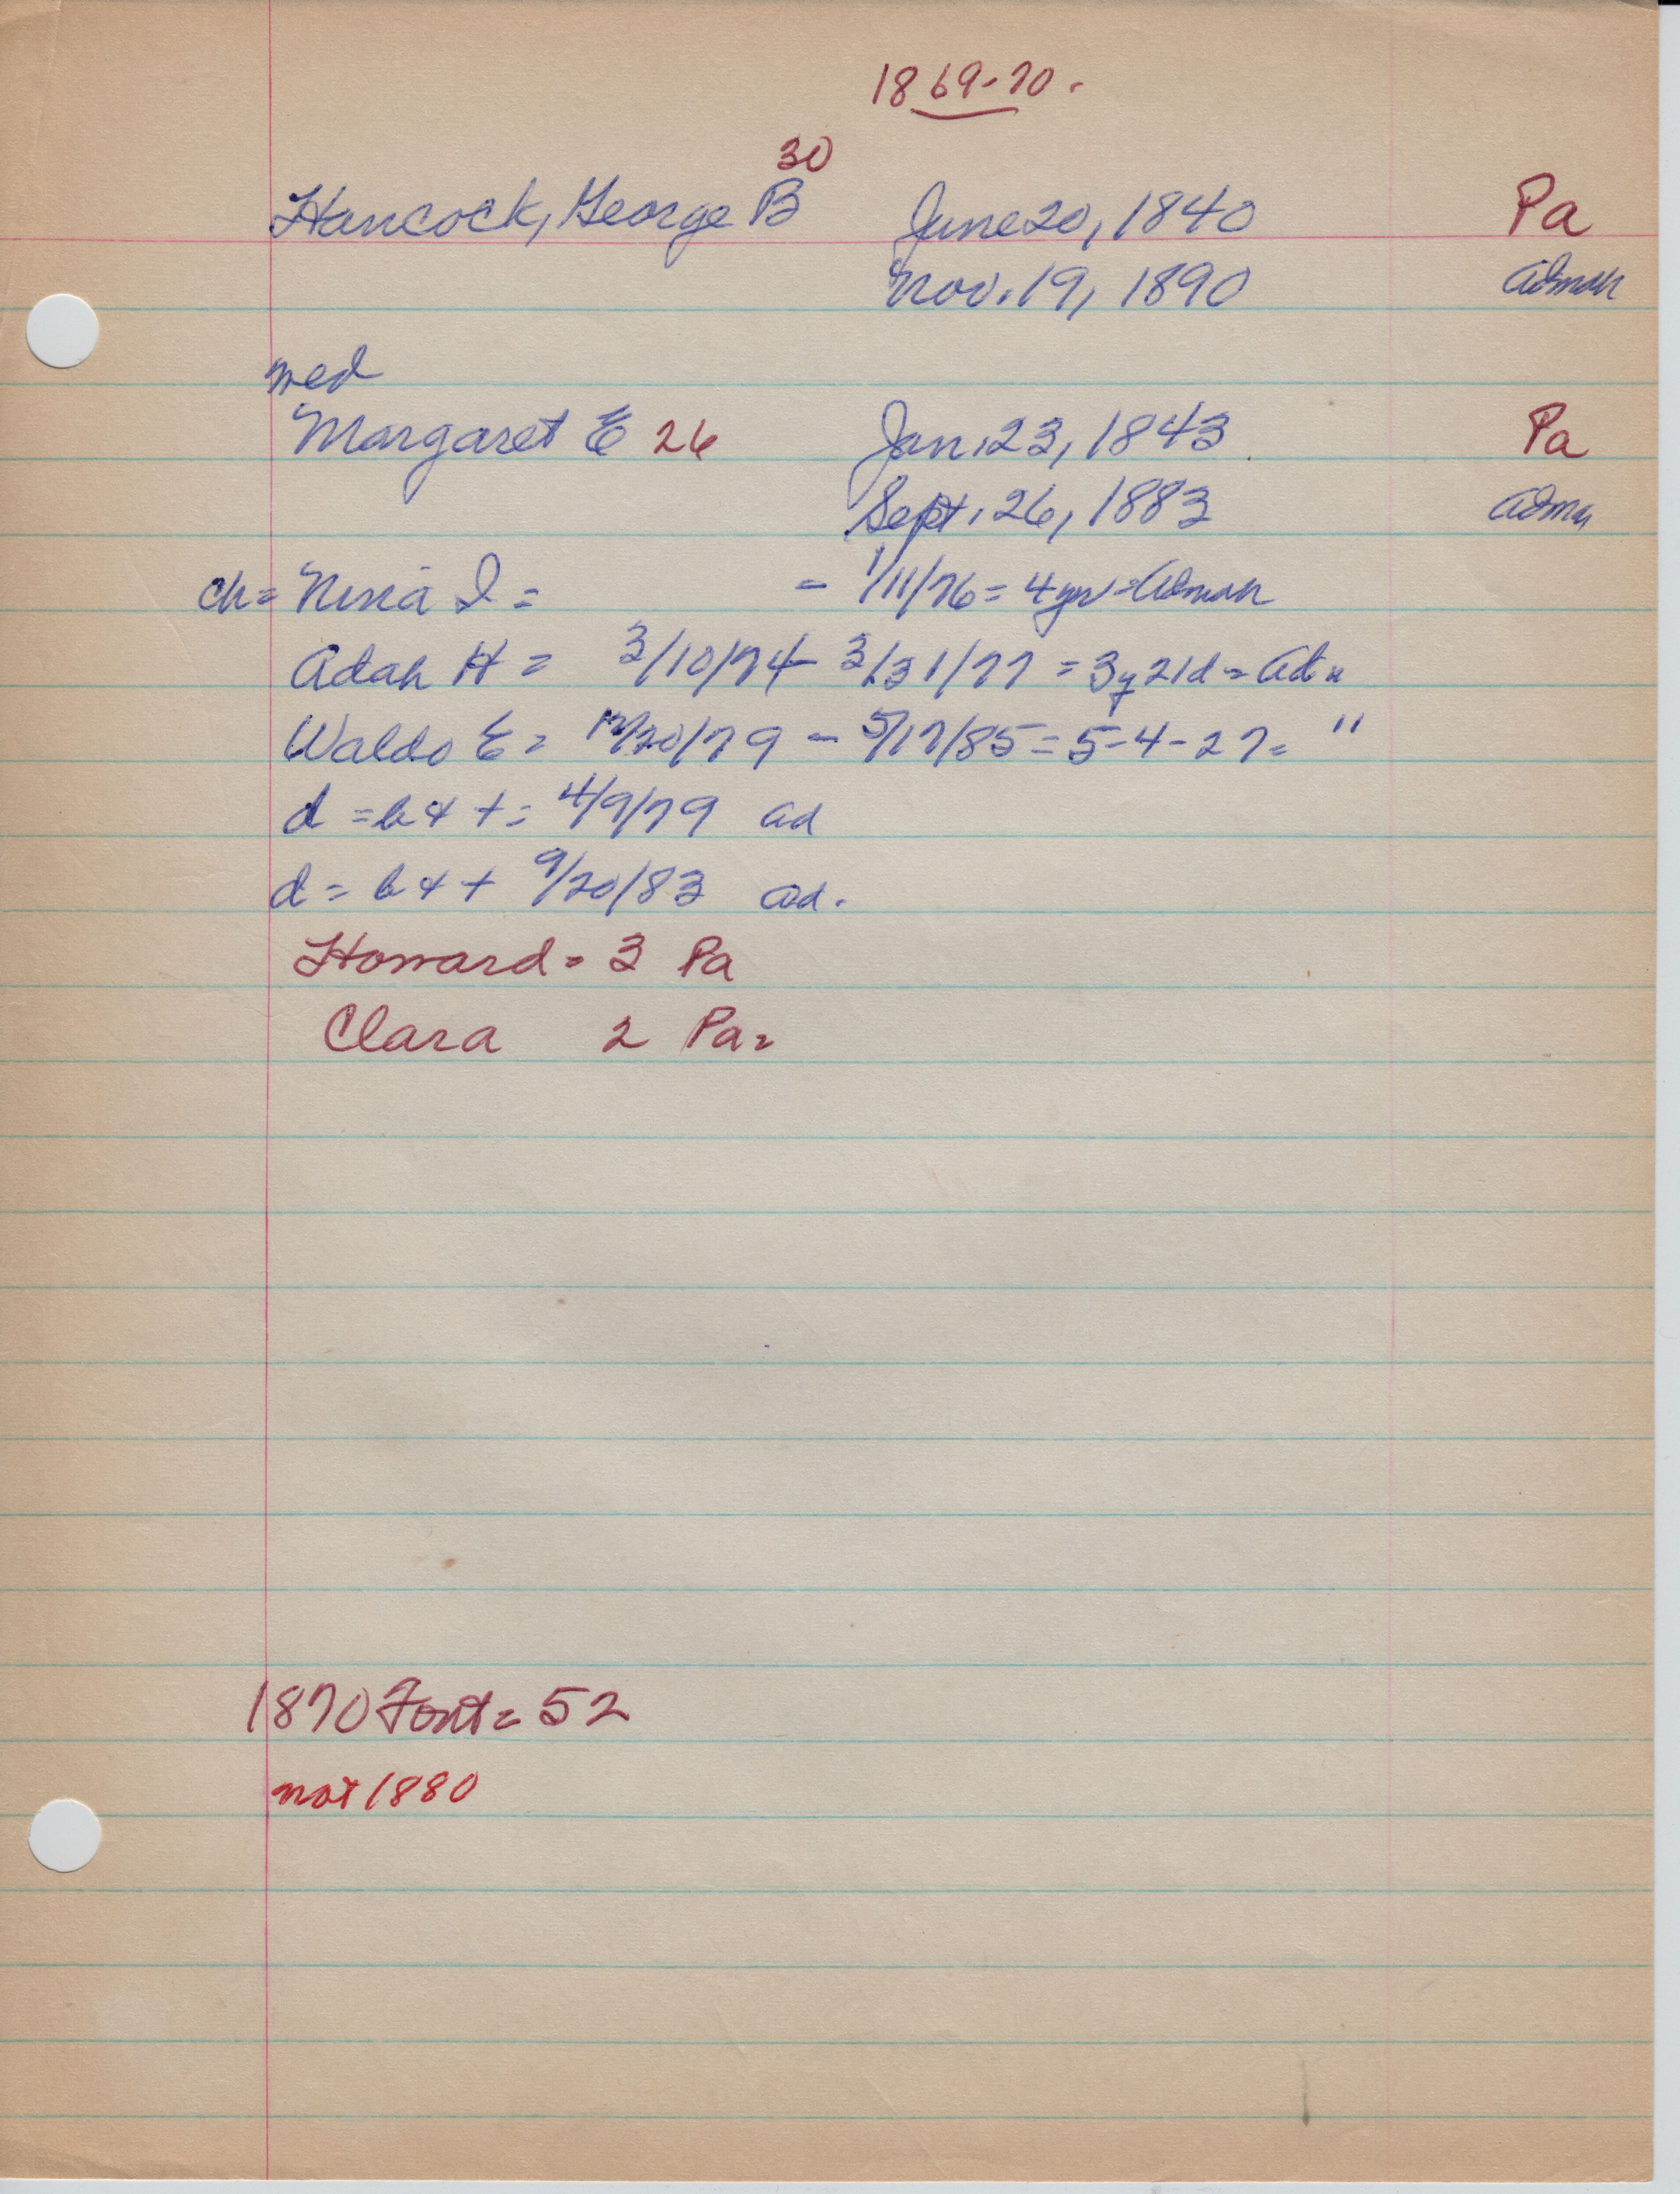 1869-70.
30
Hancock, George B June 20, 1840 Pa
Nov. 19, 1890 Admah
med
Margaret E 26 Jan. 23, 1843 Pa
Sept. 26, 1883 Adma
ch = Nina I = - 1/11/76 = 4 yr = Admah
Adah H = 3/10/74 - 3/31/77 = 3y 21d = Ad
Waldo E = 12/20/79 - 5/17/85 = 5-4-27 = "
d = b & + = 4/9/79 ad
d = b & + 9/20/83 ad.
Howard = 3 Pa
Clara 2 Pa =
1870 Font = 52
not 1880